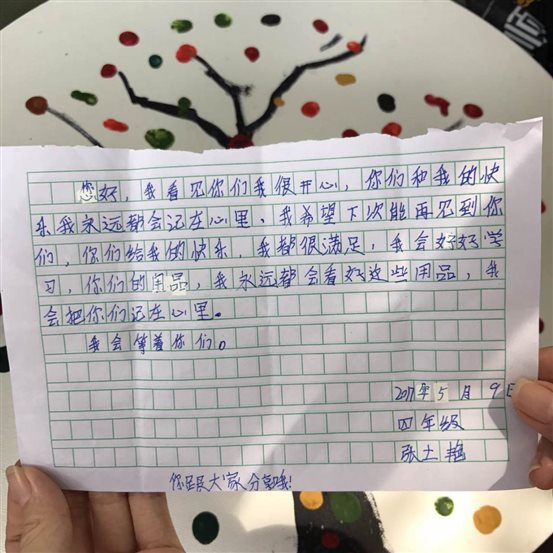 您好，我看见你们我很开心，你们和我的快
乐我永远都会记在心里、我希望下次能再见到你
们，你们给我的快乐，我都很满足，我会好好学
习，你们的用品，我永远都会看好这些用品，我
会把你们记在心里。
我会等着你们。
2017年5月9日
四年级
张土艳
你跟大家分享哦!